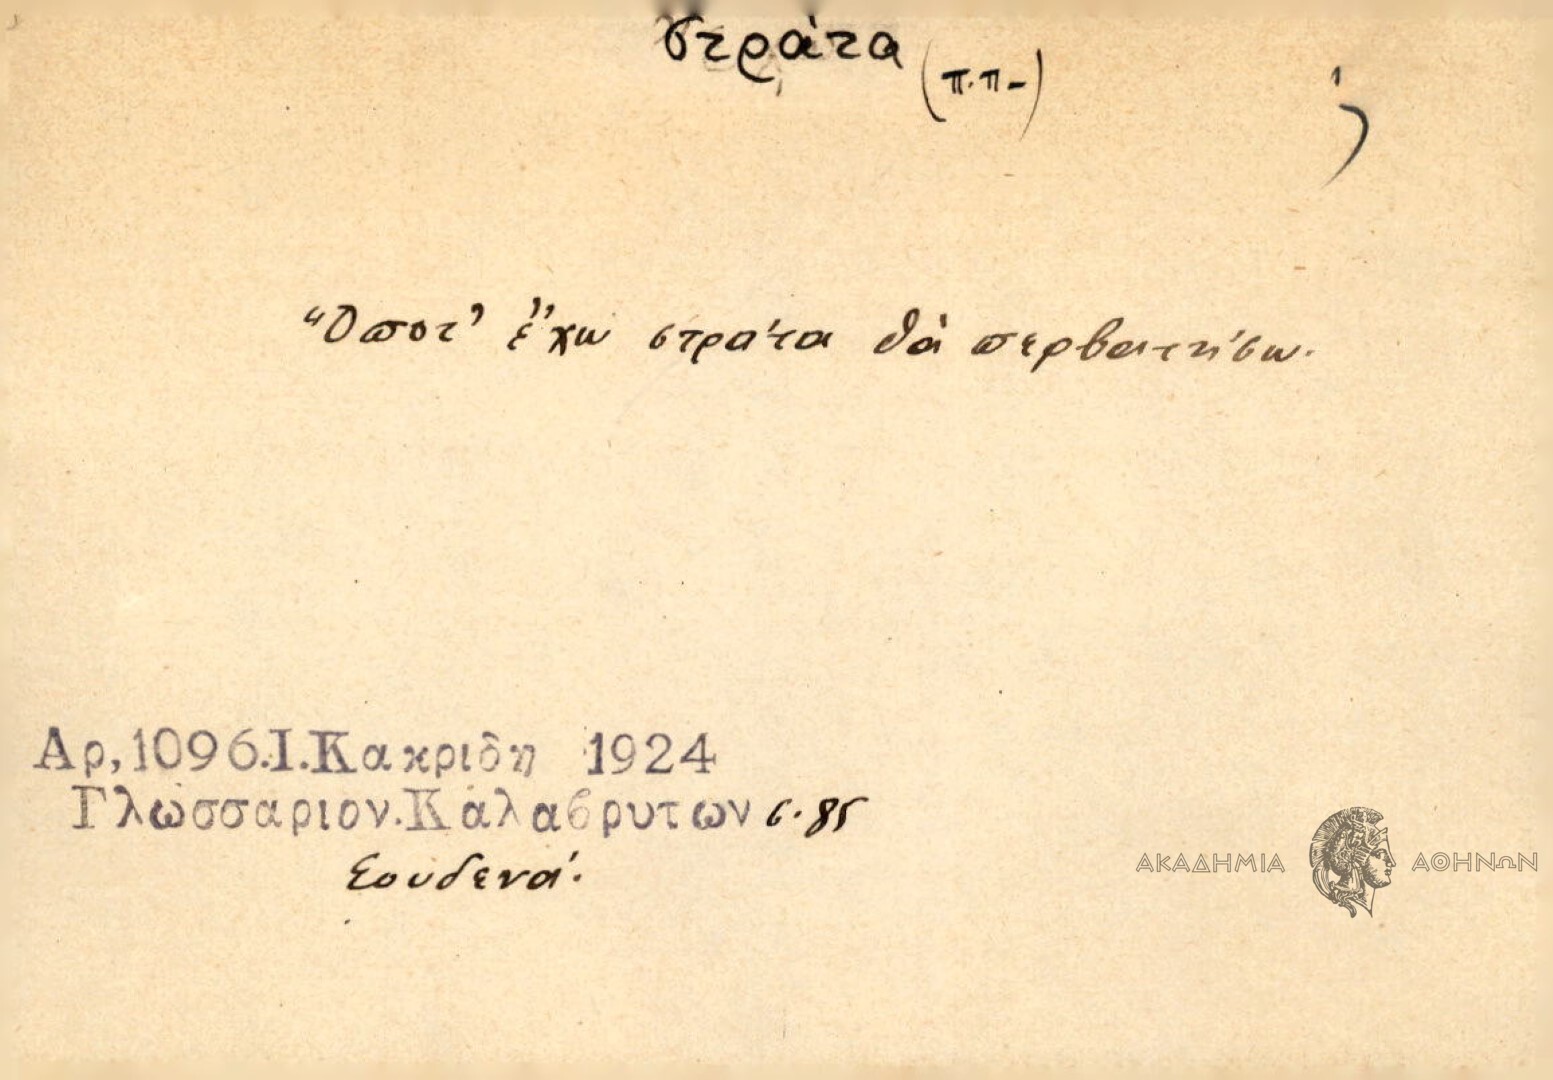 στράτα (π.π-)
Ὅποτ' ἔχω στράτα θὰ περβατήσω.
Αρ,1096.Ι.Κακριδη 1924
Γλωσσαριον.Καλαβρυτων σ. 85
Σουδενά.
ΑΚΑΔΗΜΙΑ ΑΘΗΝΩΝ